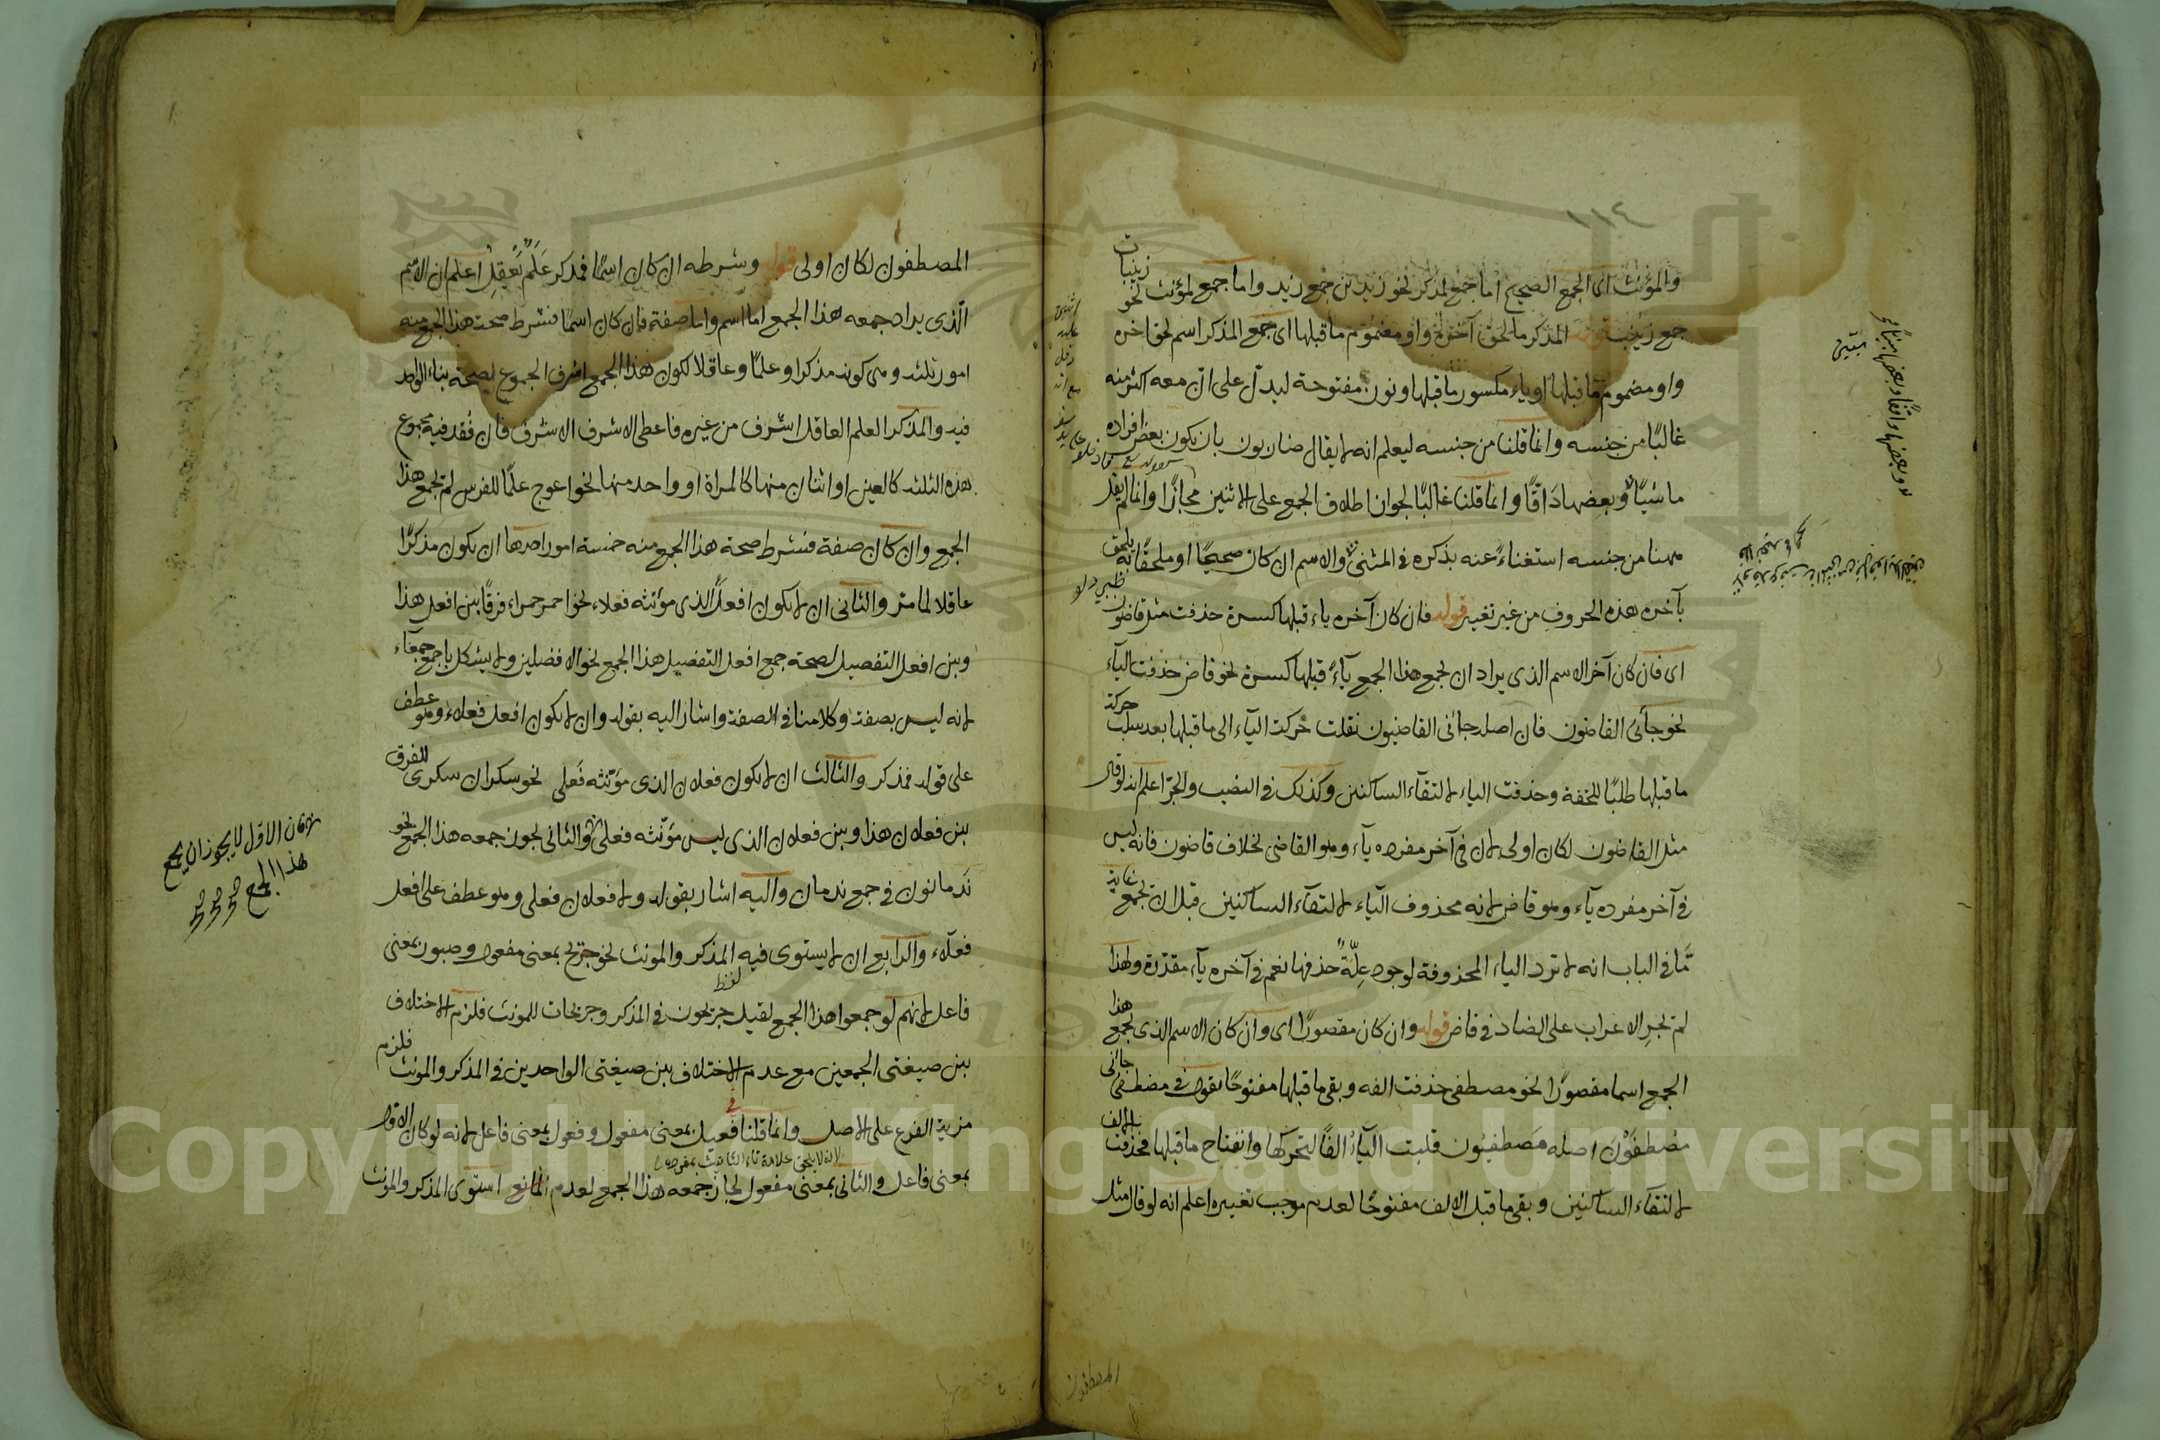 ١١٤
والمؤنث اى الجمع الصحيح اما جمع لمذكر نحو زيدين جمع زيد واما جمع لمؤنث نحو زينبات
جمع زينب المذكر ما لحق آخره واو مضموم ما قبلها اى جمع المذكر اسم لحق اخره
واو مضموم ما قبلها او ياء مكسور ما قبلها ونون مفتوحة ليدل على ان معه اكثر منه
غالبًا من جنسه وانما قلنا من جنسه ليعلم انه لا يقال ضاربون بان يكون بعض افراده
ماشيًا وبعضها دَاقًّا وانما قلنا غالبًا لجواز اطلاق الجمع على الاثنين مجازًا وانما لم يقل
ههنا من جنسه استغناءً عنه بذكره فى المثنى والاسم ان كان صحيحًا او ملحقًا به يلحق
بآخره هذه الحروف من غير تغير قوله فان كان آخره ياء قبلها كسرة حذفت مثل قاضون
اى فان كان آخر الاسم الذى يراد ان يجمع هذا الجمع يآءً قبلها كسرة نحو قاض حذفت اليآء
نحو جآئى القاضون فان اصله جائى القاضيون نقلت حركت اليآء الى ما قبلها بعد سلب حركة
ما قبلها طلبًا للخفة وحذفت الياء لالتقآء الساكنين وكذلك فى النصب والجرّ اعلم انه لو قال
مثل القاضون لكان اولى لان فى آخر مفرده يآء وهو القاضى بخلاف قاضون فانه ليس
فى آخر مفرده يآء وهو قاض لانه محذوف اليآء لالتقآء الساكنين قبل ان يجمع غاية
مّا فى الباب انه لا ترد الياء المحذوفة لوجود عِلّةِ حذفها نعم فى آخره يآء مقدّرة ولهذا
لم يجر الاعراب على الضاد فى قاض قوله وان كان مقصورًا اى وان كان الاسم الذى يجمع هذا
الجمع اسما مقصورًا نحو مصطفى حذفت الفه وبقى ما قبلها مفتوحًا تقول فى مصطفى جائى
مصْطفَوْن اصله مصَطفيُون قلبت اليآءُ الفًا لتحركها وانفتاح ما قبلها فحذفت الالف
لالتقآء الساكنين وبقى ما قبل الالف مفتوحًا لعدم موجب تغييره اعلم انه لو قال مثل
المصطفون
المصطفون لكان اولى قوله وشرطه ان كان اسمًا فمذكر عَلَمٌ يَعْقِلُ اعلم ان الاسم
الّذى يراد جمعه هذا الجمع اما اسم واما صفة فان كان اسمًا فشرط صحة هذا الجمع منه
امور ثلثه وهى كونه مذكرا وعلمًا وعاقلا لكون هذا الجمع اشرف الجموع لصحة بناء الواحد
فيه والمذكر العلم العاقل اشرف من غيره فاعطى الاشرف الاشرف فان فُقد فيه مجموع
هذه الثلثه كالعين او اثنان منها كالمراة او واحد منها نحو اعوج علمًا للفرس لم يجمع هذا
الجمع وان كان صفة فشرط صحة هذا الجمع منه خمسة امور احدها ان يكون مذكرًا
عاقلا لما مرّ والثانى ان لا يكون افعلَ الذى مؤنثه فعلاء نحو احمر حمراء فرقًا بين افعل هذا
وبين افعل التفضيل لصحة جمع افعل التفضيل هذا الجمع نحو الافضلين ولا يشكل باجمع جمعآء
لانه ليس بصفة وكلامنا فى الصفة واشار اليه بقوله وان لا يكون افعل فعلاء وهو عطف
على قوله فمذكر والثالث ان لا يكون فعلان الذى مؤنثه فَعلى نحو سكران سكرى للفرق
بين فعلان هذا وبين فعلان الذى ليس مؤنّثه فعلى والثانى يجوز جمعه هذا الجمع نحو
ندمانون فى جمع ندمان واليه اشار بقوله ولا فعلان فعلى وهو عطف على افعل
فعلآء والرابع ان لا يستوى فيه المذكر والمؤنث نحو جريح بمعنى مفعول وصبور بمعنى
فاعل لانهم لو جمعوا هذا الجمع لقيل جريحون فى المذكر وجريحات للمؤنث فلزم الاختلاف
بين صيغتى الجمعين مع عدم الاختلاف بين صيغتى الواحدين فى المذكر والمؤنث فلزم
مزية الفرع على الاصل وانما قلنا فى فعيل بمعنى مفعول وفعول بمعنى فاعل لانه لو كان الاول
لانه لا يلحق علامة تاء التانيث بمفرده
بمعنى فاعل والثانى بمعنى مفعول لجاز جمعه هذا الجمع لعدم المانع استوى المذكر والمؤنث
فان الاوّل لا يجوز ان يجمع
هذا الجمع
Copyright © King Saud University